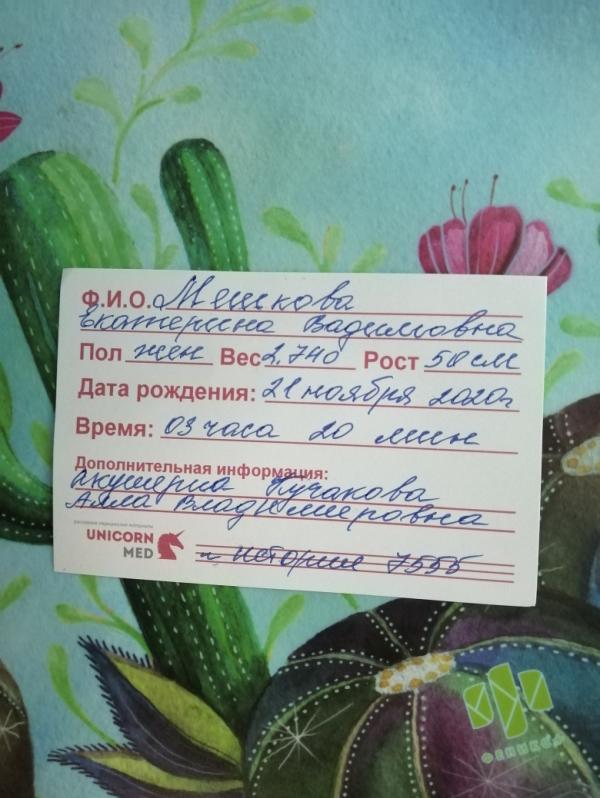 Ф.И.О. Мешкова
Екатерина Вадимовна
Пол жен Вес 2,740 Рост 50 см
Дата рождения: 21 ноября 2020г
Время: 03 часа 20 мин
Дополнительная информация:
Акушерка Кучакова
Алла Владимировна
UNICORN
MED
и история 7555
ФЕНИКС